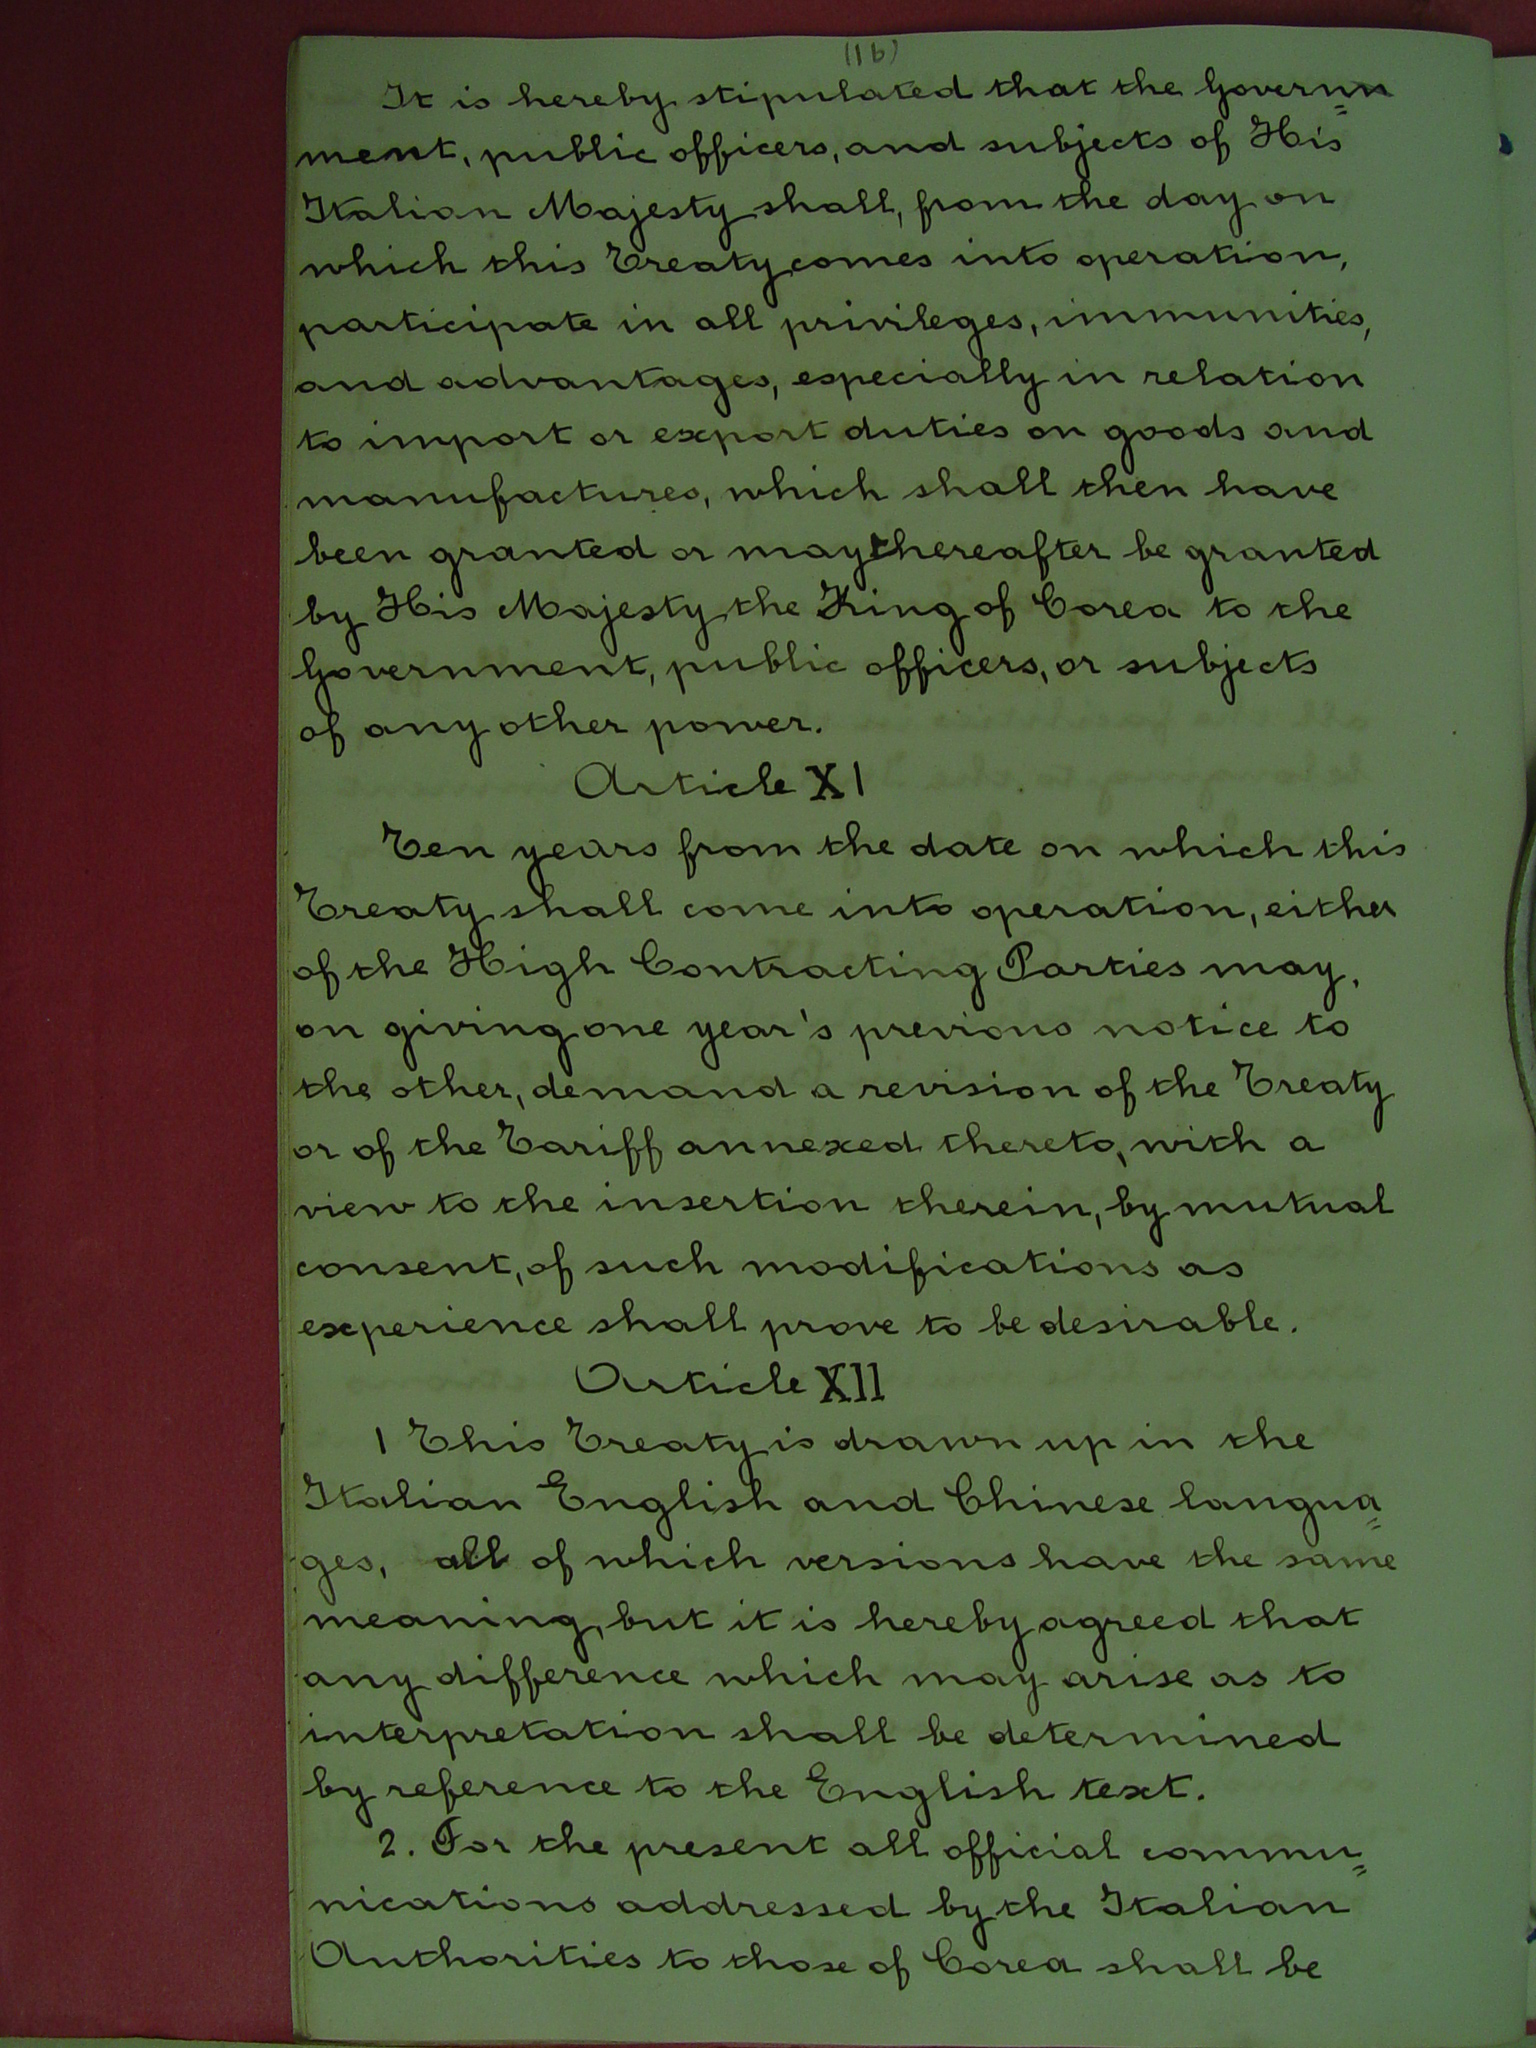 (16)
It is hereby stipulated that the Governn=
ment, public officers, and subjects of His
Italian Majesty shall, from the day on
which this Treaty comes into operation,
participate in all privileges, immunities,
and advantages, especially in relation
to import or export duties on goods and
manufactures, which shall then have
been granted or may thereafter be granted
by His Majesty the King of Corea to the
Government, public officers, or subjects
of any other power.
Article XI
Ten years from the date on which this
Treaty shall come into operation, either
of the High Contracting Parties may,
on giving one year's previous notice to
the other, demand a revision of the Treaty
or of the Tariff annexed thereto, with a
view to the insertion therein, by mutual
consent, of such modifications as
experience shall prove to be desirable.
Article XII
1 This Treaty is drawn up in the
Italian English and Chinese langua=
ges, all of which versions have the same
meaning, but it is hereby agreed that
any difference which may arise as to
interpretation shall be determined
by reference to the English text.
2. For the present all official commu=
nications addressed by the Italian
Authorities to those of Corea shall be